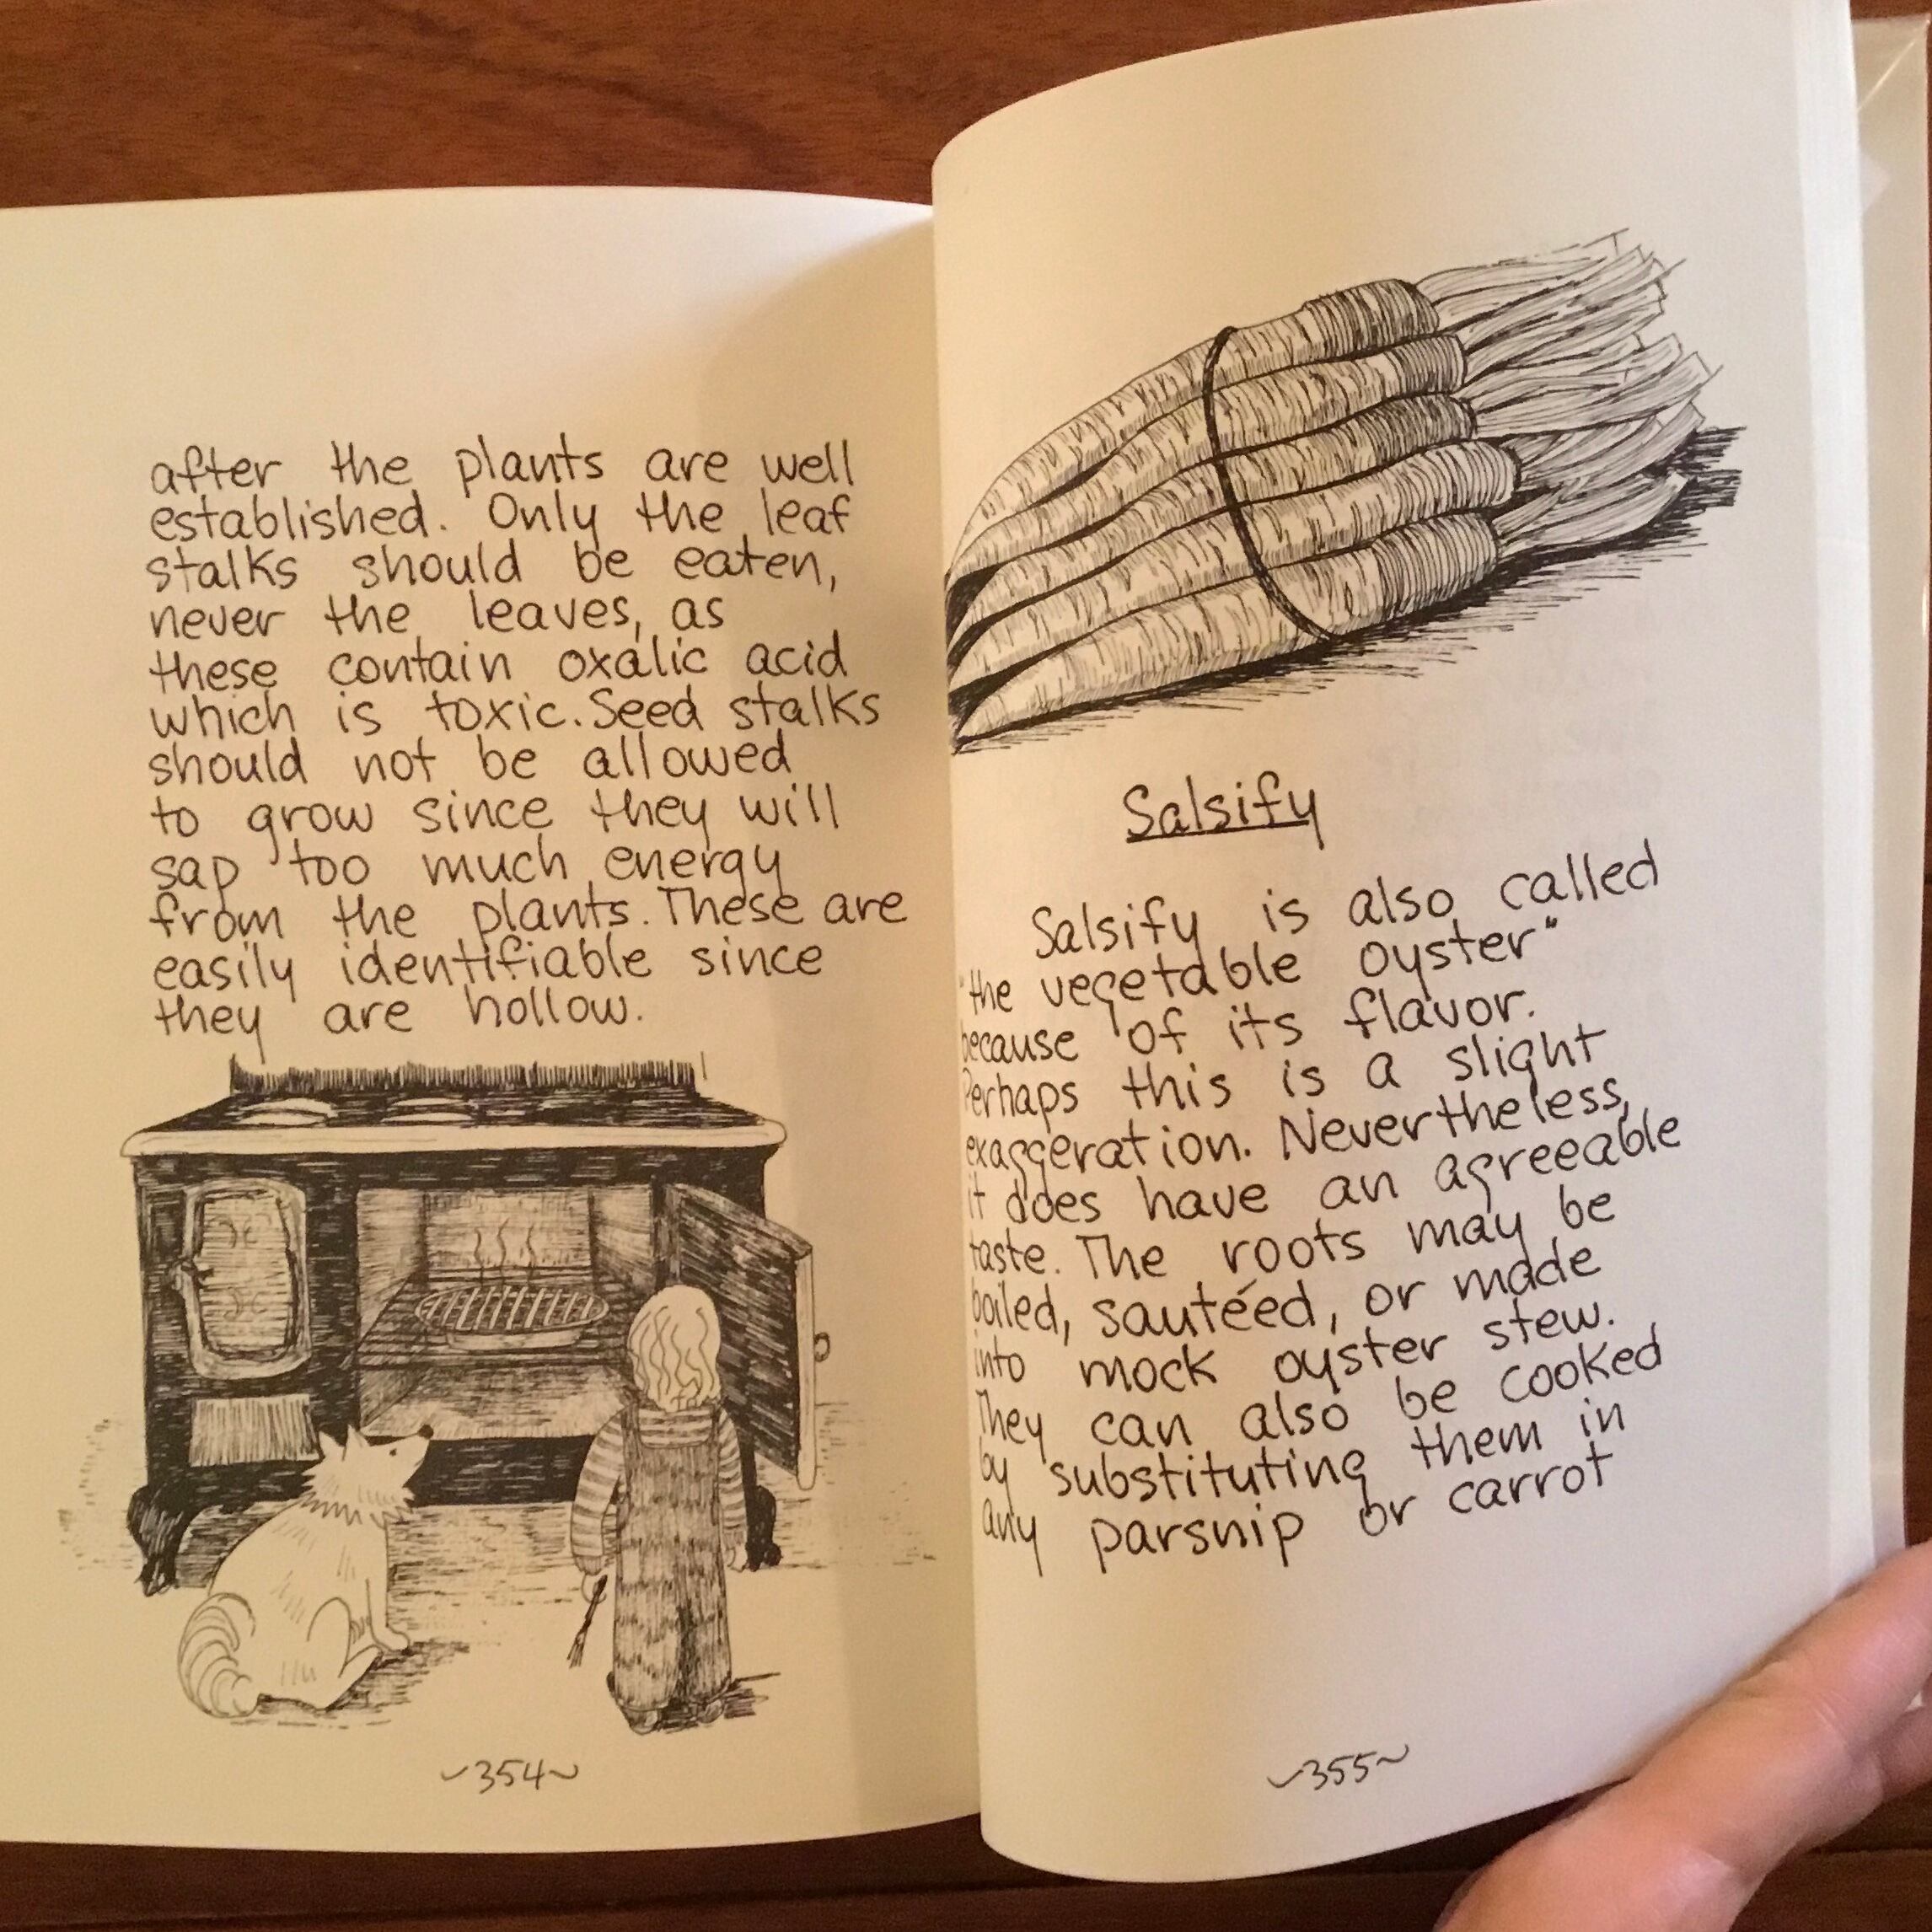 after the plants are well
established. Only the leaf
stalks should be eaten,
never the leaves, as
these contain oxalic acid
which is toxic. Seed stalks
should not be allowed
to grow since they will
sap too much energy
from the plants. These are
easily identifiable since
they are hollow.
~354~
Salsify
Salsify is also called
"the vegetable oyster"
because of its flavor.
Perhaps this is a slight
exaggeration. Nevertheless,
it does have an agreeable
taste. The roots may be
boiled, sautéed, or made
into mock oyster stew.
They can also be cooked
by substituting them in
any parsnip or carrot
~355~